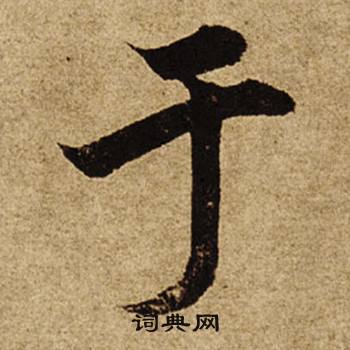 于
词典网